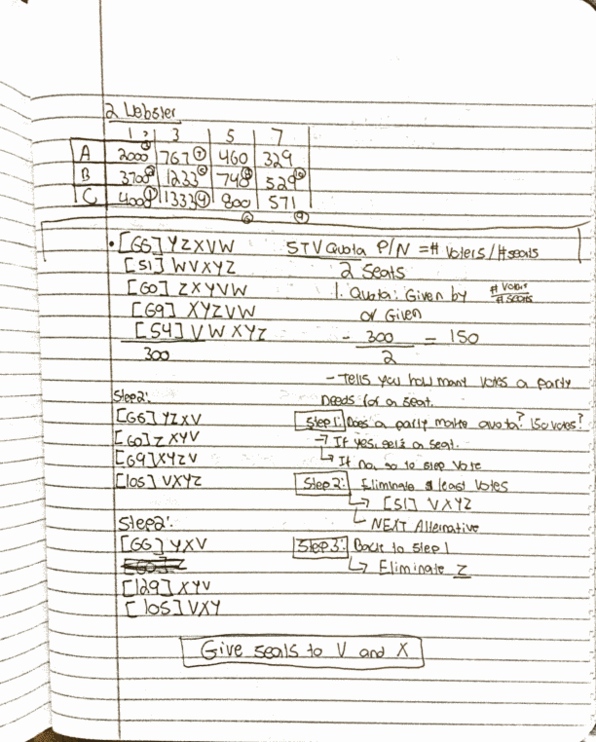 2 Webster
1 3 5 7
A 2000 767 460 329
B 3700 1233 740 529
C 4000 1333 800 571
• [66] YZXVW STV Quota P/N = # Voters / # seats
[51] WVXYZ 2 Seats
[60] ZXYVW 1. Quota: Given by # Voters / # seats
[69] XYZVW or Given
[54] VWXYZ - 300 / 2 = 150
300
- Tells you how many votes a party
needs for a seat.
Step2:
[66] YZXV Step 1: Does a party make quota? 150 votes?
[60] ZXYV → If yes, gets a seat.
[69] XYZV ↳ If no, go to step
[105] VXYZ Step 2: Eliminate least votes
↳ [51] VXYZ
NEXT Alternative
Step2:
[66] YXV Step 3: Back to step 1
↳ Eliminate Z
[129] XYV
[105] VXY
Give seats to V and X